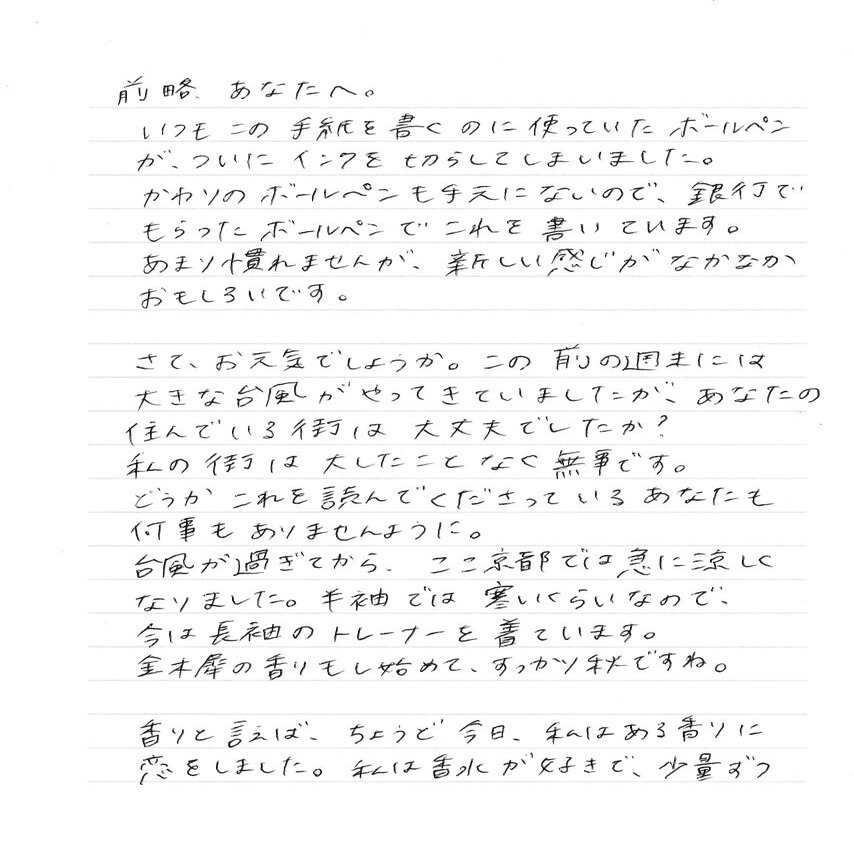 前略、あなたへ。
いつもこの手紙を書くのに使っていたボールペン
が、ついにインクを切らしてしまいました。
かわりのボールペンも手元にないので、銀行で
もらったボールペンでこれを書いています。
あまり慣れませんが、新しい感じがなかなか
おもしろいです。
さて、お元気でしょうか。この前の週末には
大きな台風がやってきていましたが、あなたの
住んでいる街は大丈夫でしたか?
私の街は大したことなく無事です。
どうかこれを読んでくださっているあなたも
何事もありませんように。
台風が過ぎてから、ここ京都では急に涼しく
なりました。半袖では寒いくらいなので、
今は長袖のトレーナーを着ています。
金木犀の香りもし始めて、すっかり秋ですね。
香りと言えば、ちょうど今日、私はある香りに
恋をしました。私は香水が好きで、少量ずつ